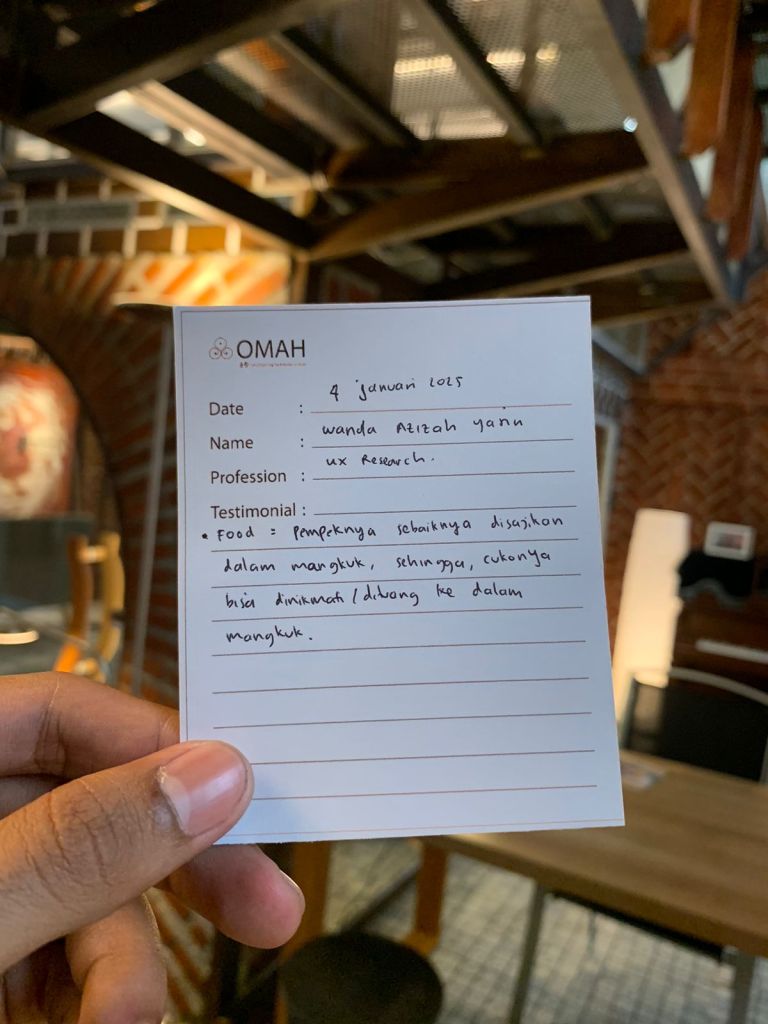 OMAH
Date : 4 januari 2025
Name : wanda Azizah yarin
Profession : ux Research.
Testimonial :
• Food : Pempeknya sebaiknya disajikan
dalam mangkuk, sehingga, cukonya
bisa dinikmati/dituang ke dalam
mangkuk.